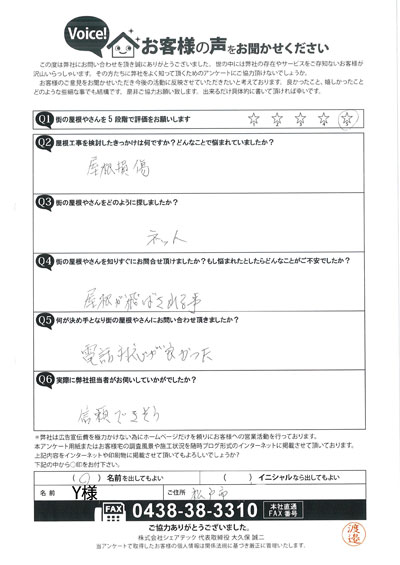 Voice!
お客様の声をお聞かせください
この度は弊社にお問い合わせを頂き誠にありがとうございました。世の中には弊社の存在やサービスをご存知ないお客様が
沢山いらっしゃいます。その方たちに弊社をよく知って頂くためのアンケートにご協力頂けないでしょうか。
お客様のご意見をお聞かせいただき今後の活動に反映させていただきたいと考えております。良かったこと、嬉しかったこと
どのような些細な事でも結構です。是非ご協力お願い致します。出来るだけ具体的に書いて頂ければ幸いです。
Q1 街の屋根やさんを5段階で評価をお願いします ☆ ☆ ☆ ☆ ☆
Q2 屋根工事を検討したきっかけは何ですか?どんなことで悩まれていましたか?
屋根損傷
Q3 街の屋根やさんをどのように探しましたか?
ネット
Q4 街の屋根やさんを知りすぐにお問合せ頂けましたか?もし悩まれたとしたらどんなことがご不安でしたか?
屋根が飛ばされる事
Q5 何が決め手となり街の屋根やさんにお問い合わせ頂きましたか?
電話対応が良かった
Q6 実際に弊社担当者がお伺いしていかがでしたか?
信頼できそう
※弊社は広告宣伝費を極力かけない為にホームページだけを頼りにお客様への営業活動を行っております。
本アンケート用紙またはお客様宅の調査風景や施工状況を随時ブログ形式のインターネットに掲載させて頂いております。
上記内容をインターネットや印刷物に掲載させて頂いてもよろしいでしょうか?
下記の中から○印をお付け下さい。
( ○ ) 名前を出してもよい ( ) イニシャルなら出してもよい
名前 Y様 ご住所 松戸市
FAX 0438-38-3310 本社直通 FAX番号
ご協力ありがとうございました。
株式会社シェアテック 代表取締役 大久保 誠二
当アンケートで取得したお客様の個人情報は関係法規に基づき厳正に管理いたします。
渡邉